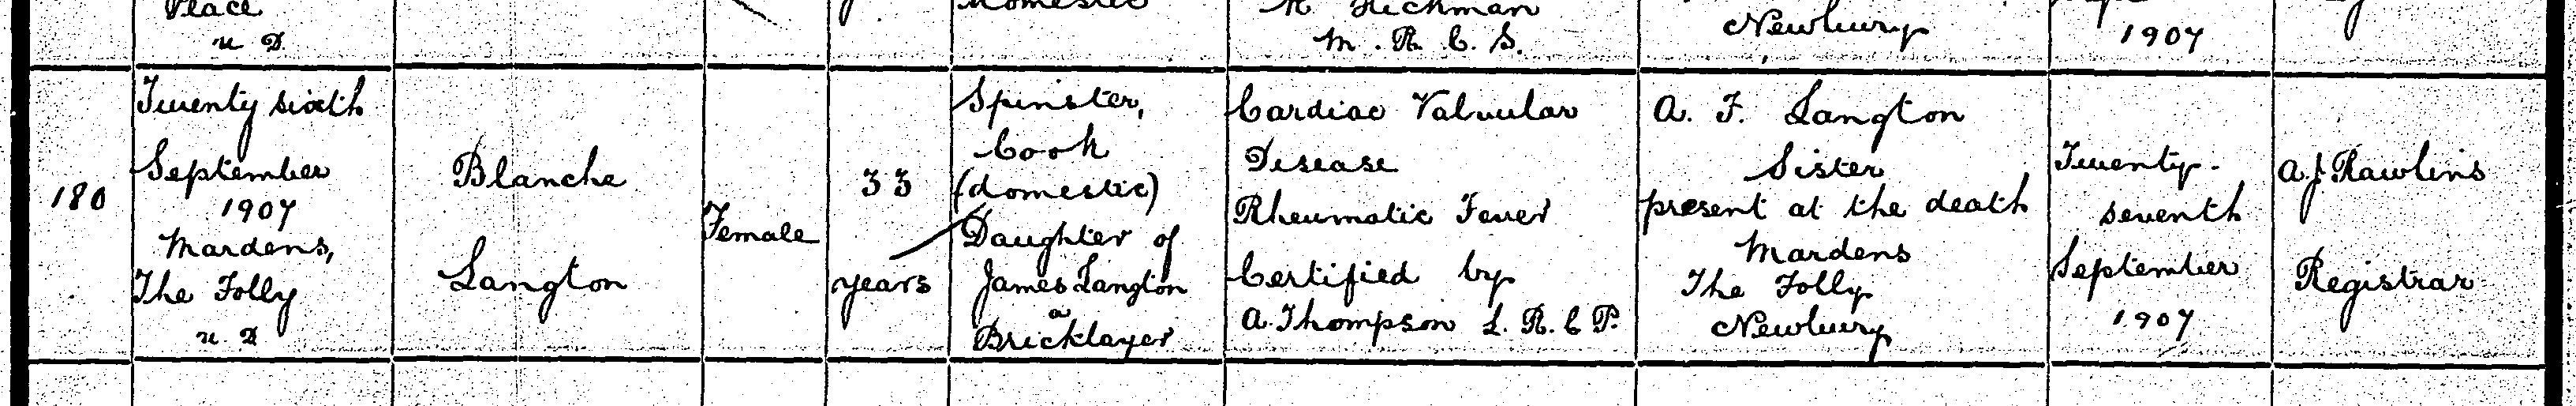 Place
U D.
Domestic
H Hickman
M. R. C. S.
Newbury
1907
180
Twenty sixth
September
1907
Mardens,
The Folly
U. D
Blanche
Langton
Female
33
years
Spinster,
Cook
(domestic)
Daughter of
James Langton
a
Bricklayer
Cardiac Valvular
Disease
Rheumatic Fever
Certified by
A. Thompson L. R. C P.
A. F. Langton
Sister
present at the death
Mardens
The Folly
Newbury
Twenty-
seventh
September
1907
A J Rawlins
Registrar